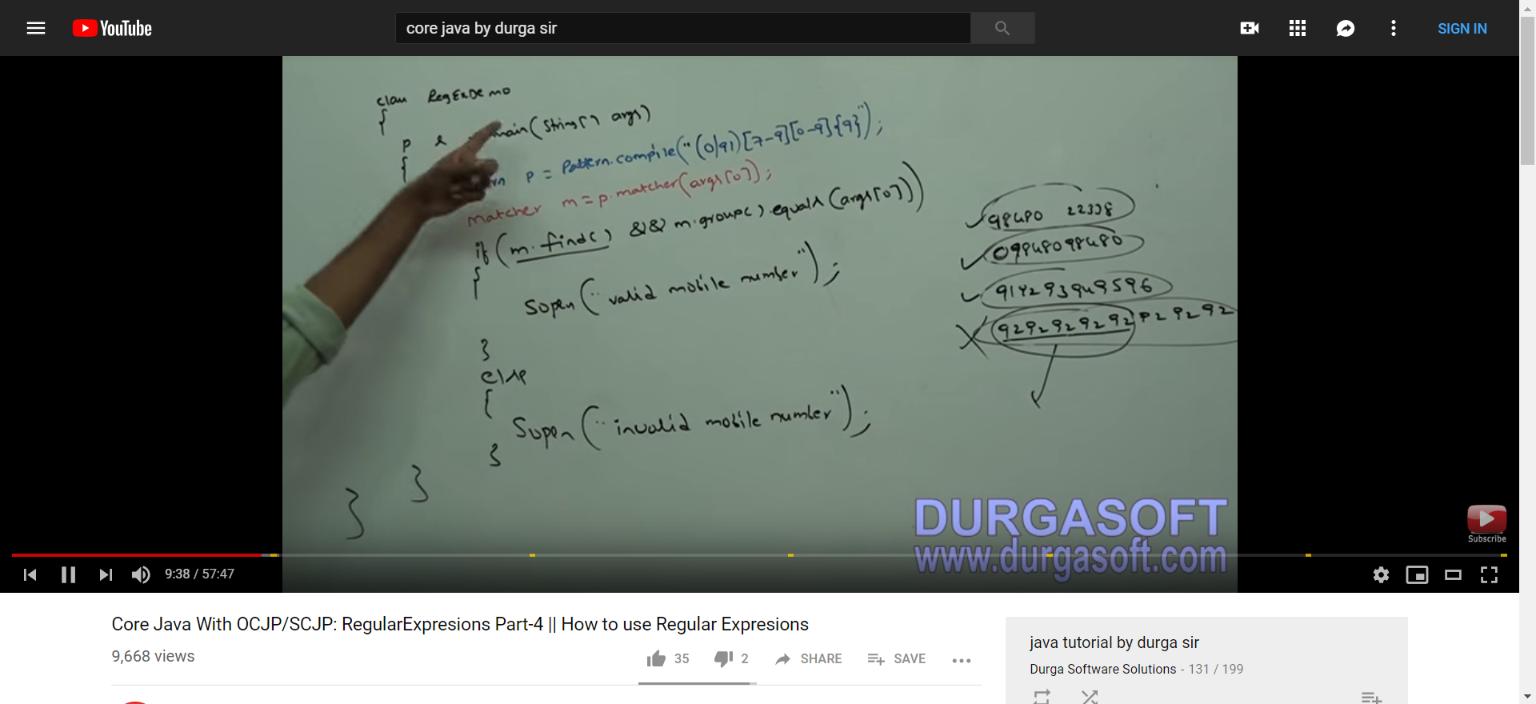 YouTube
core java by durga sir
SIGN IN
class RegExDemo
{
p s main(String[] args)
{
p = Pattern.compile("(0|91)[7-9][0-9]{9}");
matcher m = p.matcher(args[0]);
if (m.find() && m.group().equals(args[0]))
{
Sopln("valid mobile number");
}
else
{
Sopln("invalid mobile number");
}
}
}
98480 22338
09848098480
917293949596
DURGASOFT
www.durgasoft.com
Subscribe
9:38 / 57:47
Core Java With OCJP/SCJP: RegularExpresions Part-4 || How to use Regular Expresions
9,668 views
35
2
SHARE
SAVE
java tutorial by durga sir
Durga Software Solutions - 131 / 199